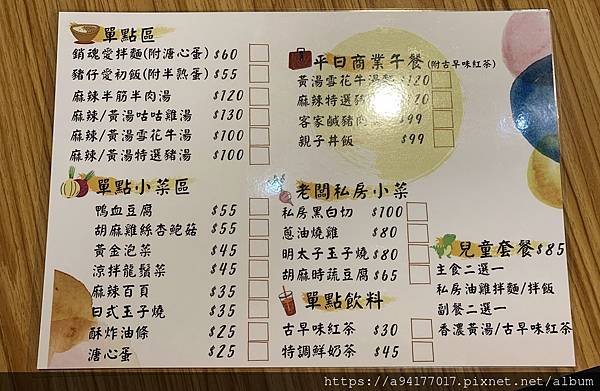 單點區
銷魂愛拌麵(附溏心蛋) $60
豬仔愛初飯(附半熟蛋) $55
麻辣半筋半肉湯 $120
麻辣/黃湯咕咕雞湯 $130
麻辣/黃湯雪花牛湯 $100
麻辣/黃湯特選豬湯 $100
單點小菜區
鴨血豆腐 $55
胡麻雞絲杏鮑菇 $55
黃金泡菜 $45
涼拌龍鬚菜 $45
麻辣百頁 $35
日式玉子燒 $35
酥炸油條 $25
溏心蛋 $25
平日商業午餐(附古早味紅茶)
黃湯雪花牛湯 $120
麻辣特選豬 $120
客家鹹豬肉 $99
親子丼飯 $99
老闆私房小菜
私房黑白切 $100
蔥油燒雞 $80
明太子玉子燒 $80
胡麻時蔬豆腐 $65
單點飲料
古早味紅茶 $30
特調鮮奶茶 $45
兒童套餐 $85
主食二選一
私房油雞拌麵/拌飯
副餐二選一
香濃黃湯/古早味紅茶
https://a94177017.pixnet.net/album